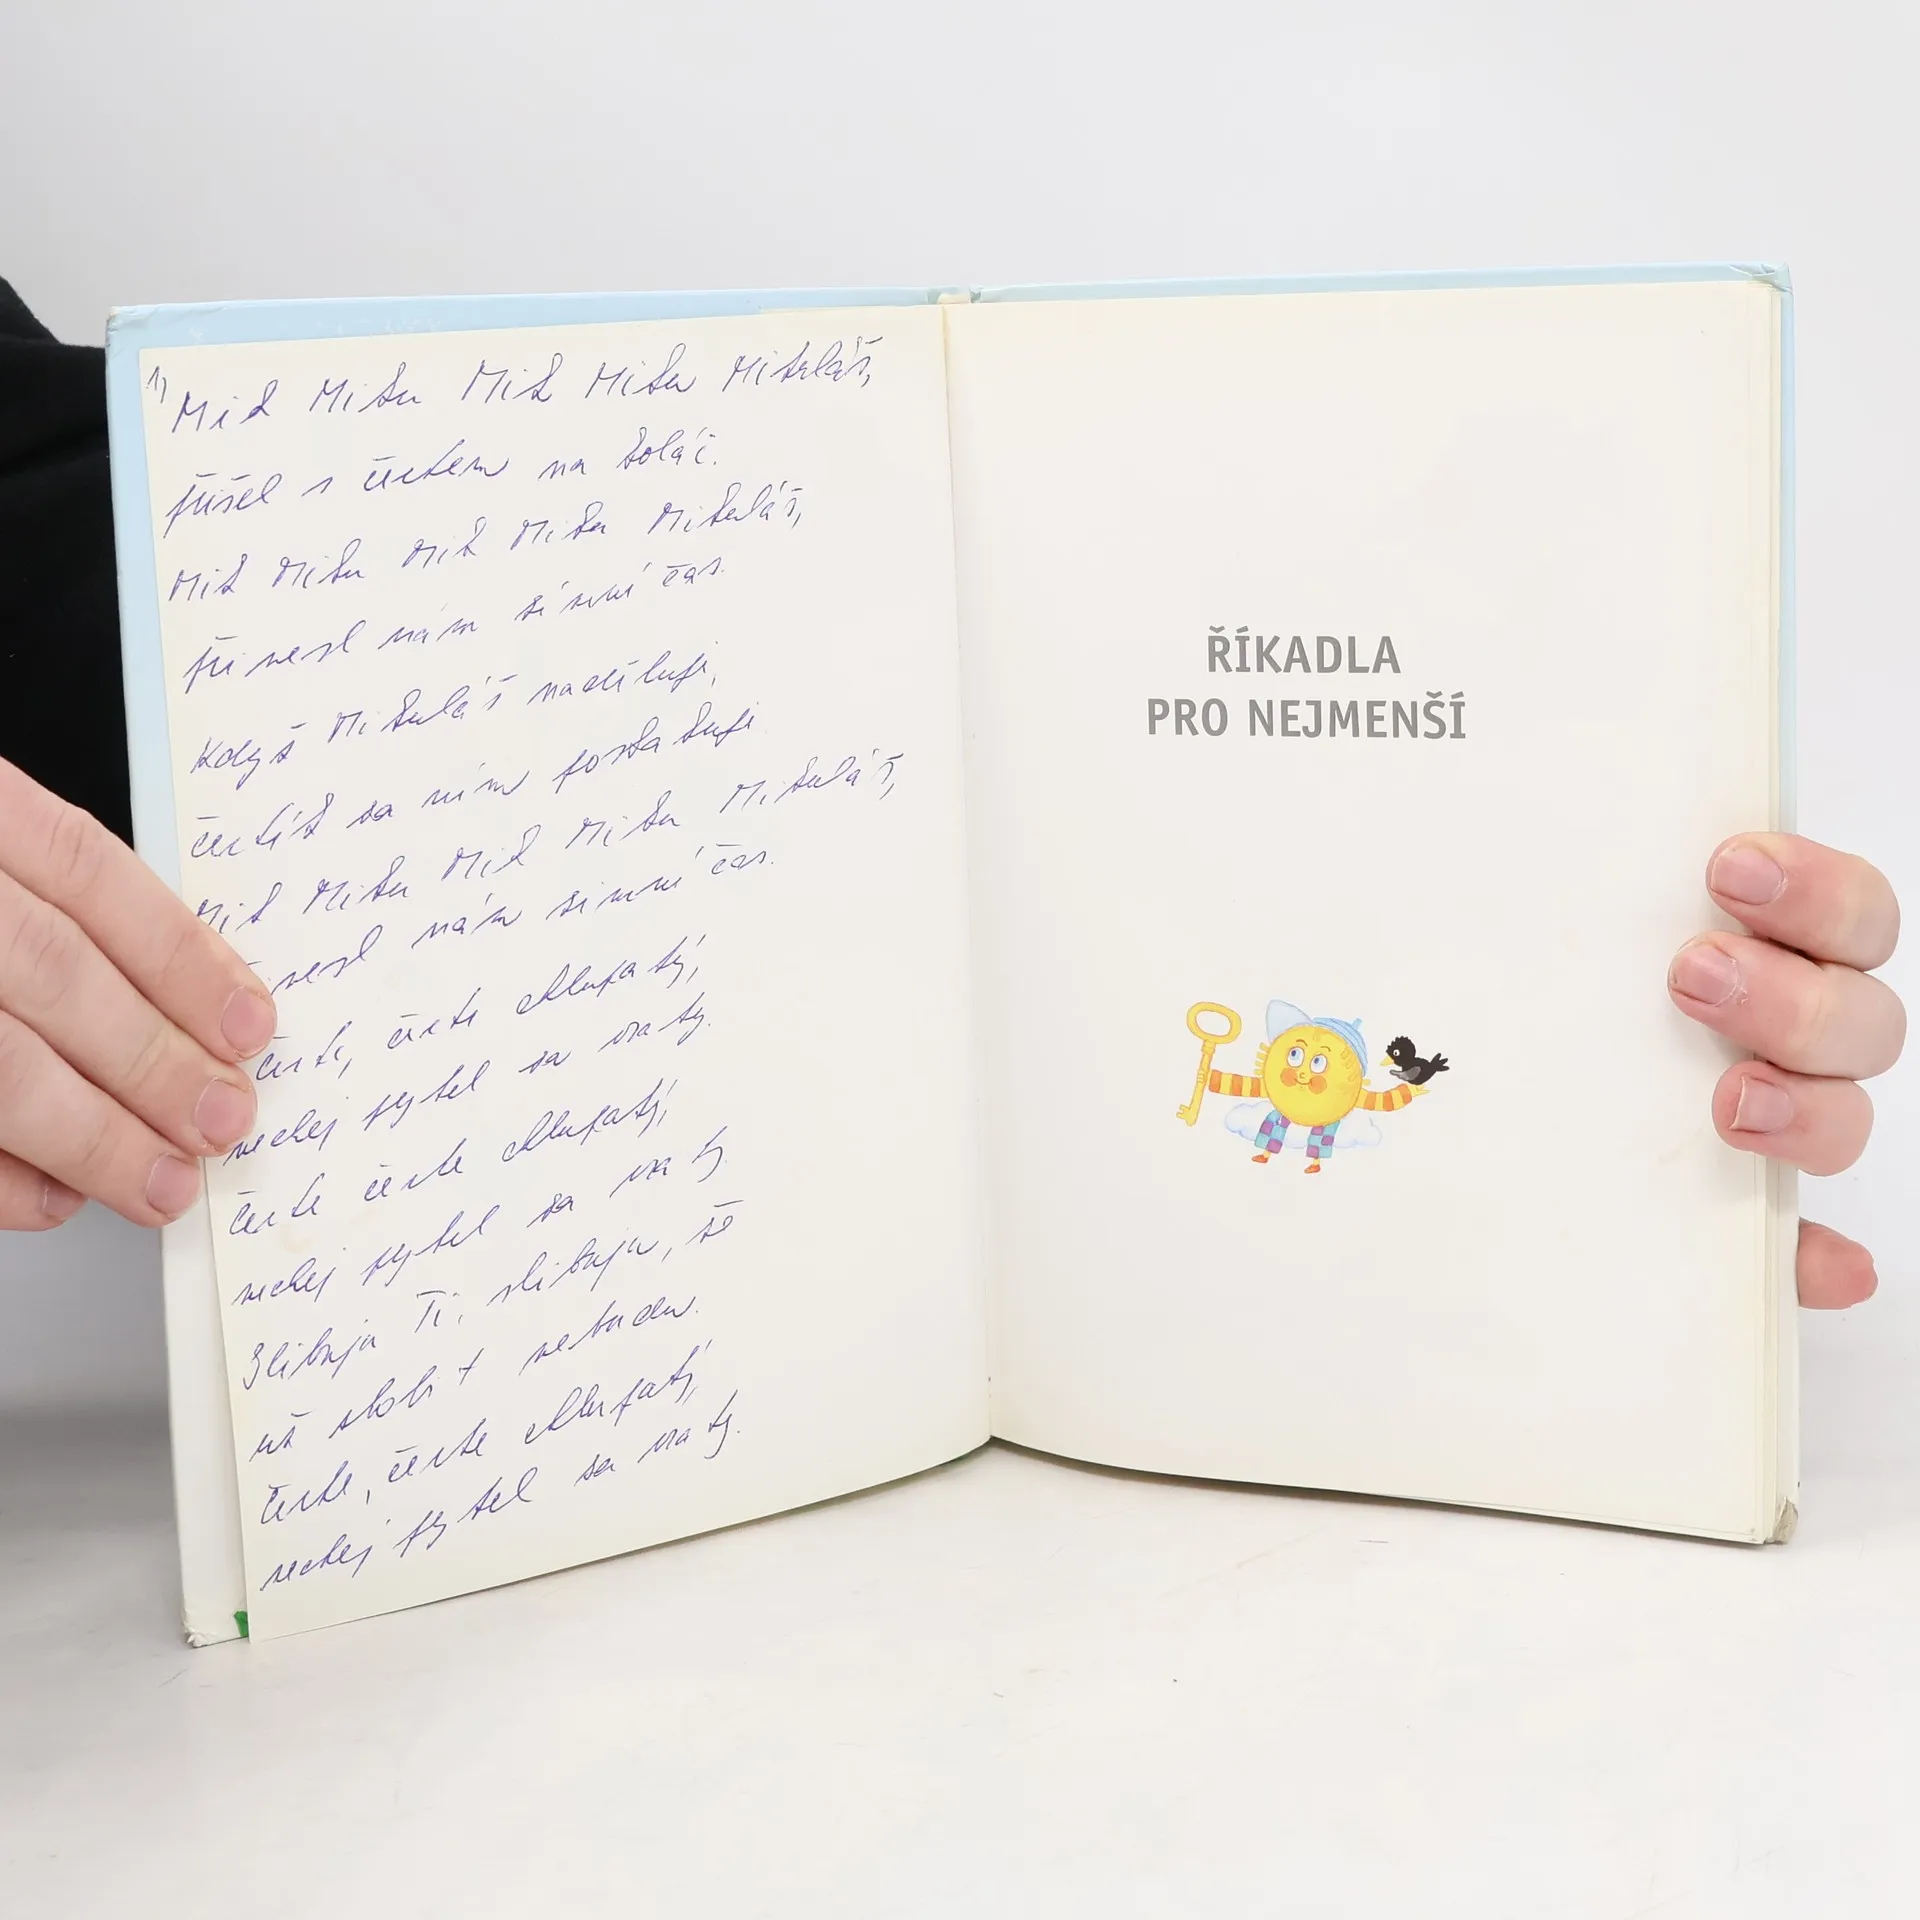 1) Mik Miku Mik Miku Mikuláš,
přišel s čertem na koláč.
Mik Miku Mik Miku Mikuláš,
přinesl nám zimní čas.
Když Mikuláš naděluje,
čertík za ním poskakuje
Mik Miku Mik Miku Mikuláš,
nesl nám zimní čas.
Čerte, čerte chlupatý,
nechej pytel za vraty.
Čerte čerte chlupatý,
nechej pytel za vraty.
Slibuju Ti, slibuju, že
už zlobit nebudu.
Čerte, čerte chlupatý,
nechej pytel za vraty.
ŘÍKADLA
PRO NEJMENŠÍ